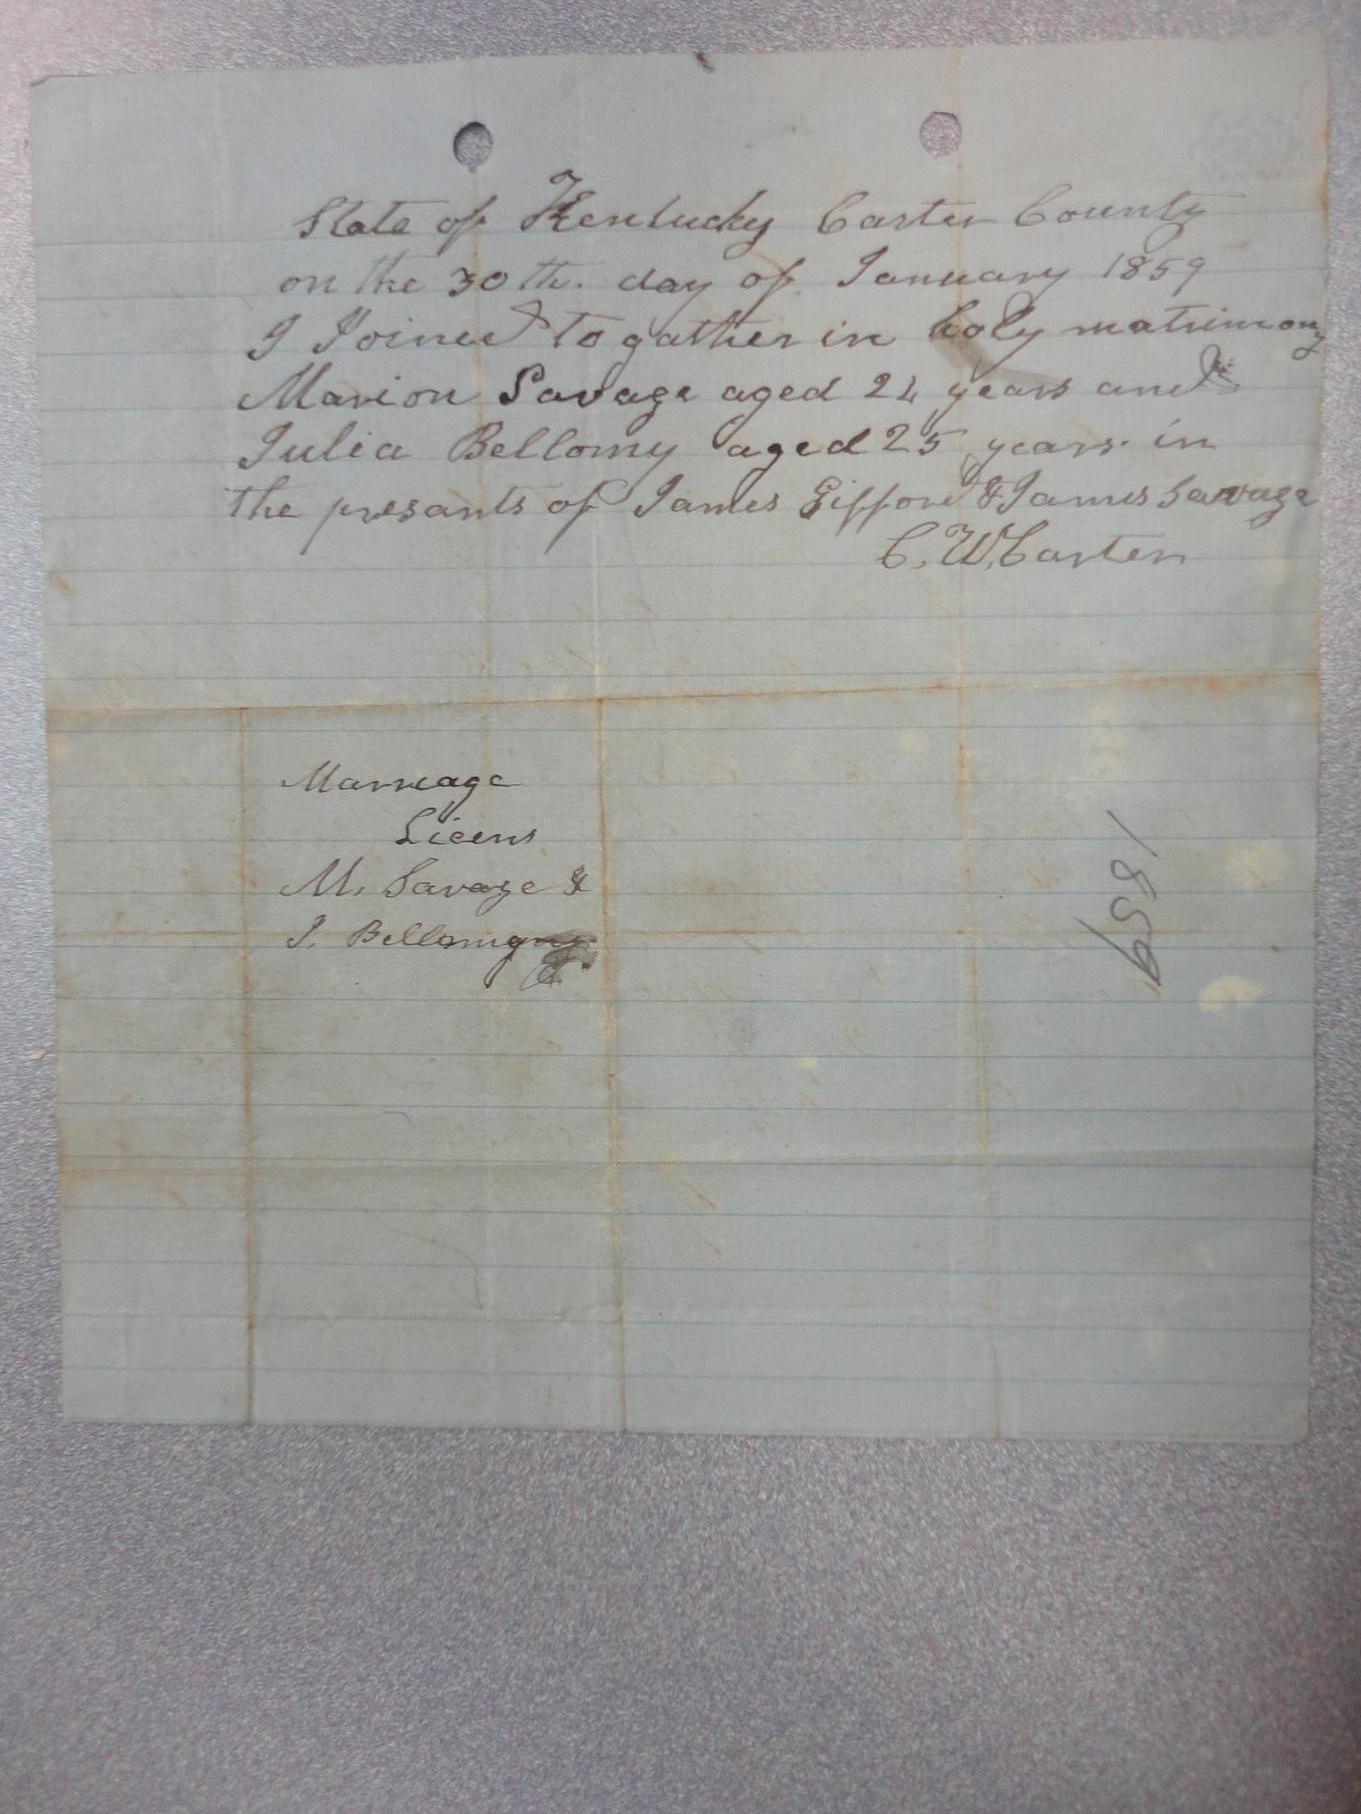 State of Kentucky Carter County
on the 30th. day of January 1859
I Joined to gather in holy matrimony
Marion Savage aged 24 years and
Julia Bellomy aged 25 years in
the presants of James Gifford & James Savage
C. W. Carter
Marreage
Licens
M. Savage &
J. Bellomy
1859